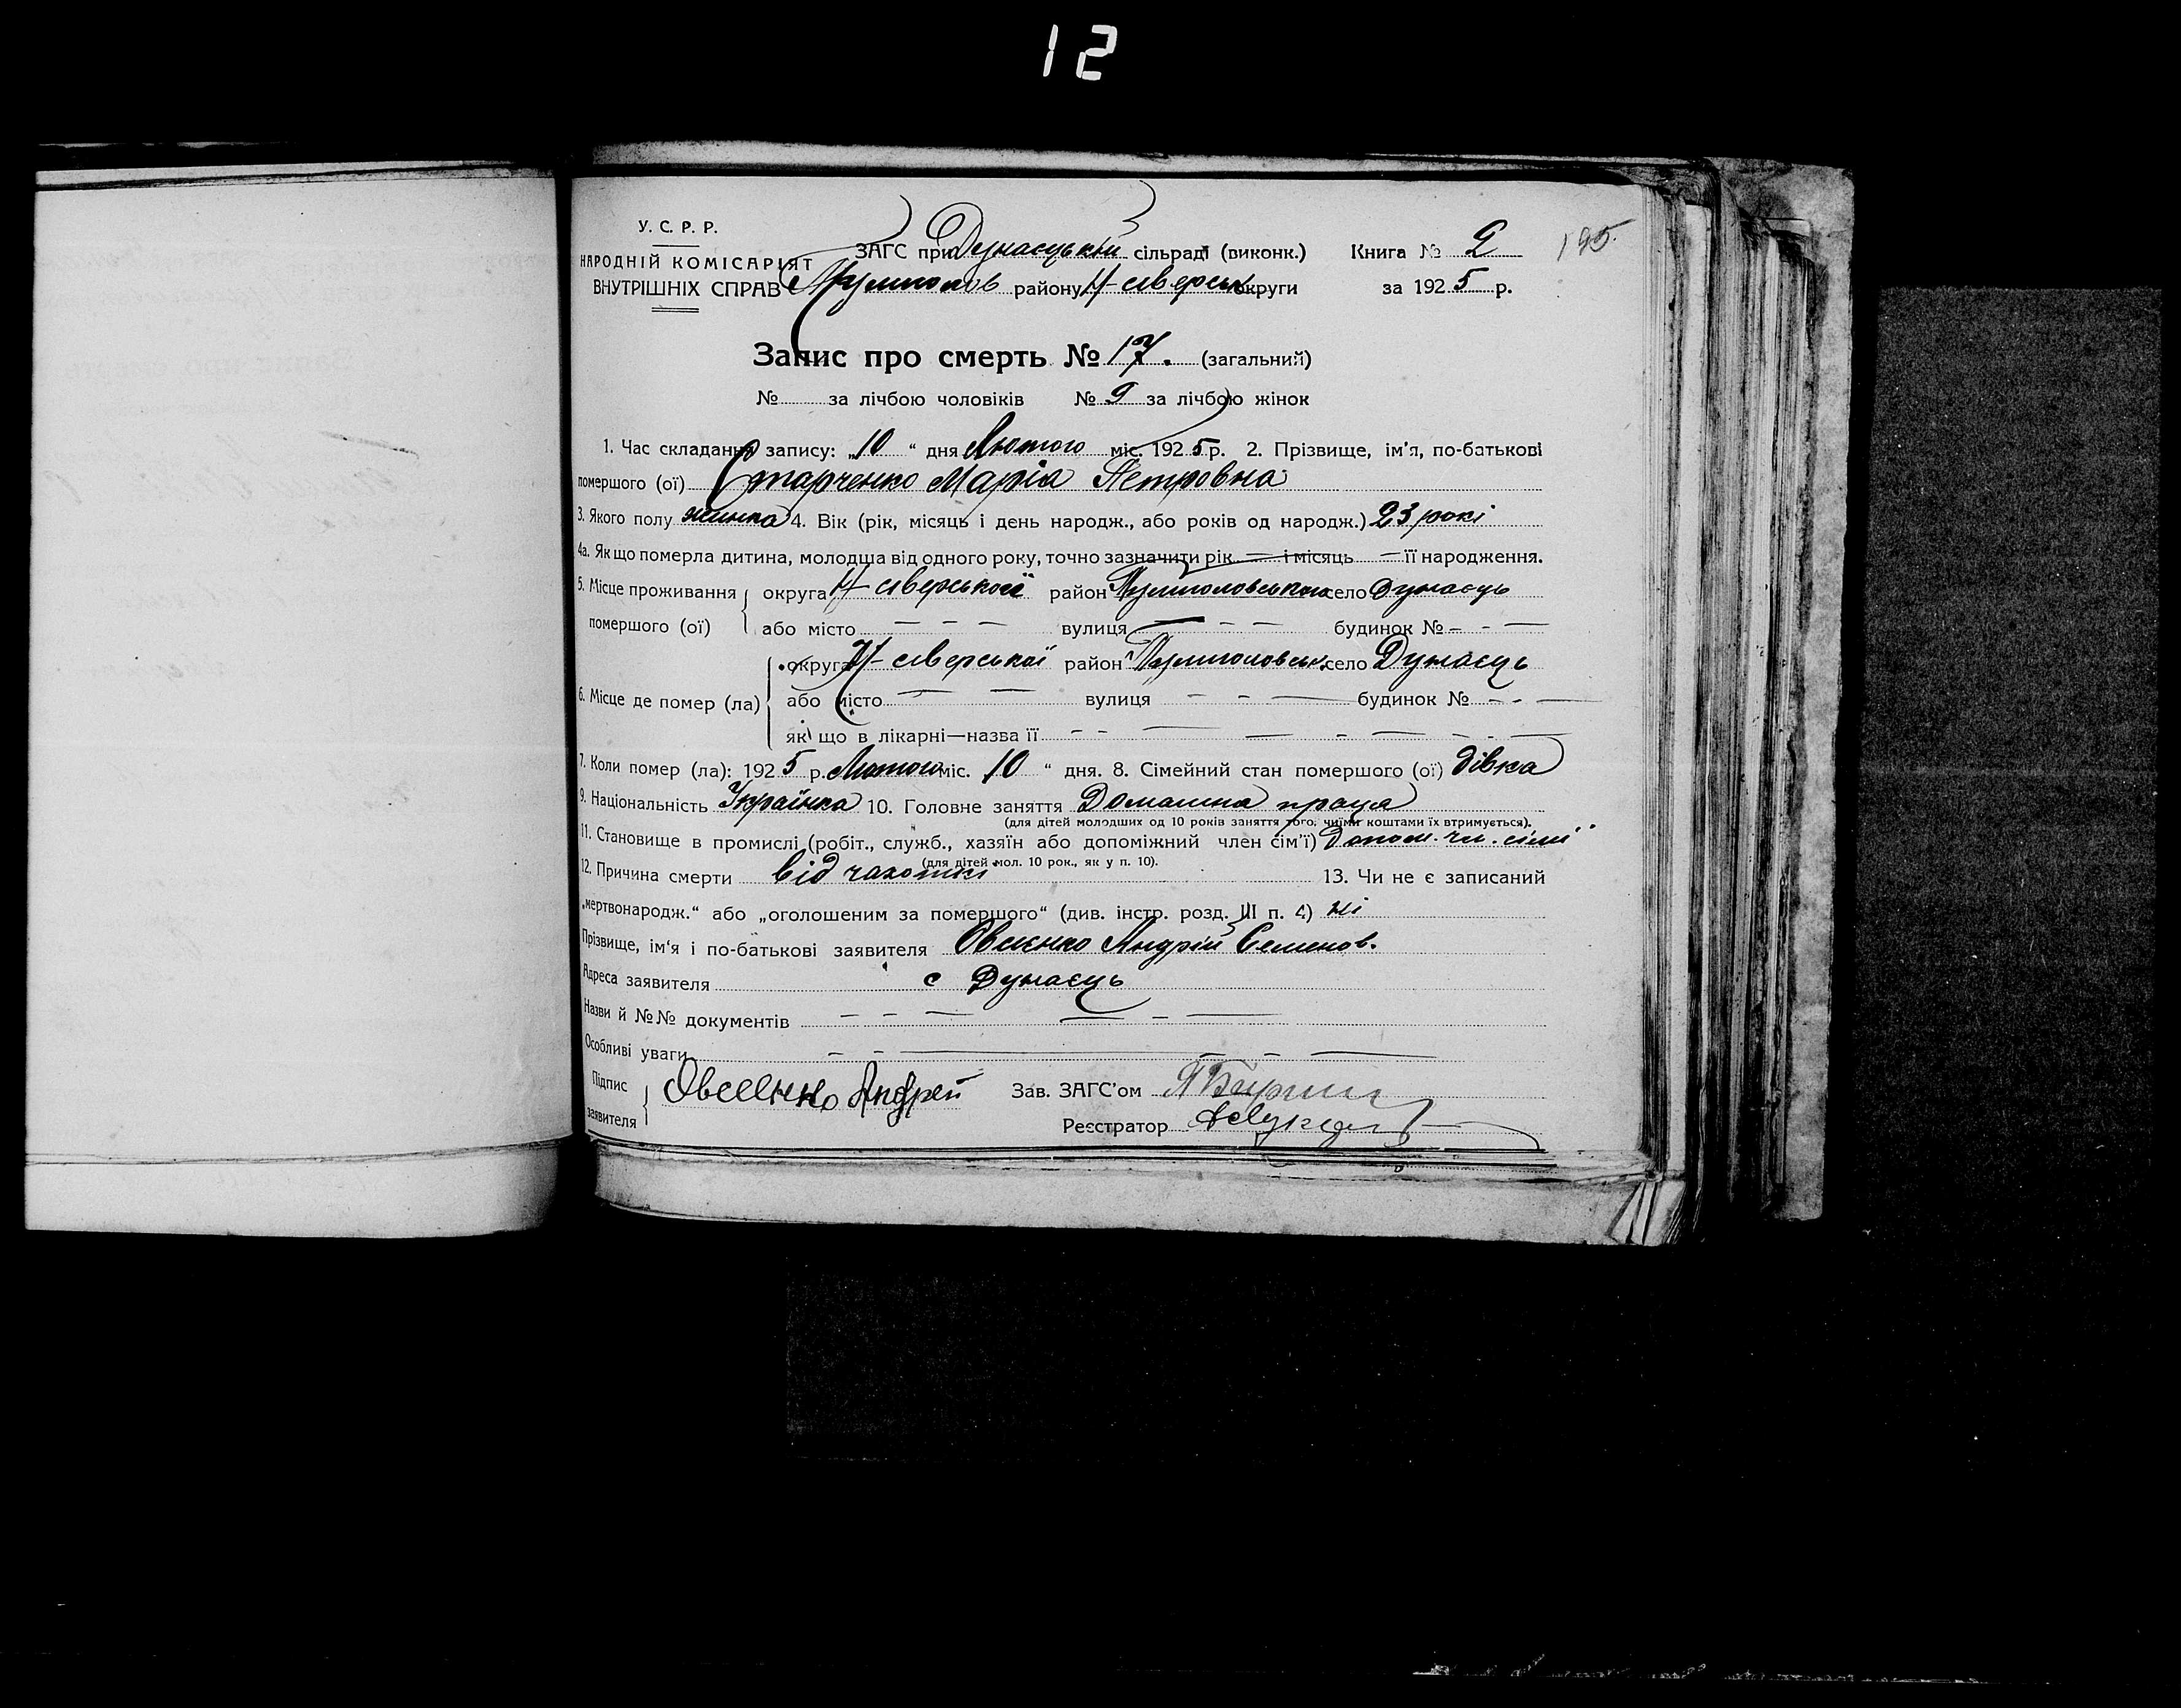 12
195.
У. С. Р. Р.
НАРОДНІЙ КОМІСАРІЯТ
ВНУТРІШНІХ СПРАВ
ЗАГС при Дунаєцькій сільраді (виконк.) Книга № 2
району Н-сіверськ округи за 1925 р.
Запис про смерть № 17. (загальний)
№ за лічбою чоловіків № 9 за лічбою жінок
1. Час складання запису: „10“ дня Лютого міс. 1925 р. 2. Прізвище, ім'я, по-батькові
помершого (ої) Старченко Марія Петровна
3. Якого полу жинка 4. Вік (рік, місяць і день народж., або років од народж.) 23 рокі
4а. Як що померла дитина, молодша від одного року, точно зазначити рік — і місяць — її народження.
5. Місце проживання помершого (ої) округа Н-сіверськоі район село Дунаєць
або місто — — — вулиця — — — будинок № - - —
6. Місце де помер (ла) округа Н-сіверської район село Дунаєць
або місто — — вулиця - - — будинок № - - —
як що в лікарні—назва її - - — — - — - - —
7. Коли помер (ла): 1925 р. Лютого міс. 10 “ дня. 8. Сімейний стан помершого (ої) дівка
9. Національність Українка 10. Головне заняття Домашна праця
(для дітей молодших од 10 років заняття того, чиїми коштами їх втримується).
11. Становище в промислі (робіт., служб., хазяїн або допоміжний член сім'ї) Допом. чл. сімі
(для дітей мол. 10 рок., як у п. 10).
12. Причина смерти від чахоткі 13. Чи не є записаний
„мертвонародж.“ або „оголошеним за помершого“ (див. інстр. розд. III п. 4) ні
Прізвище, ім'я і по-батькові заявителя Овсієнко Андрій Семенов.
Адреса заявителя с Дунаєць
Назви й №№ документів — - — — - —
Особливі уваги - - — — - —
Підпис заявителя Овсіенко Андрей Зав. ЗАГС'ом
Реєстратор